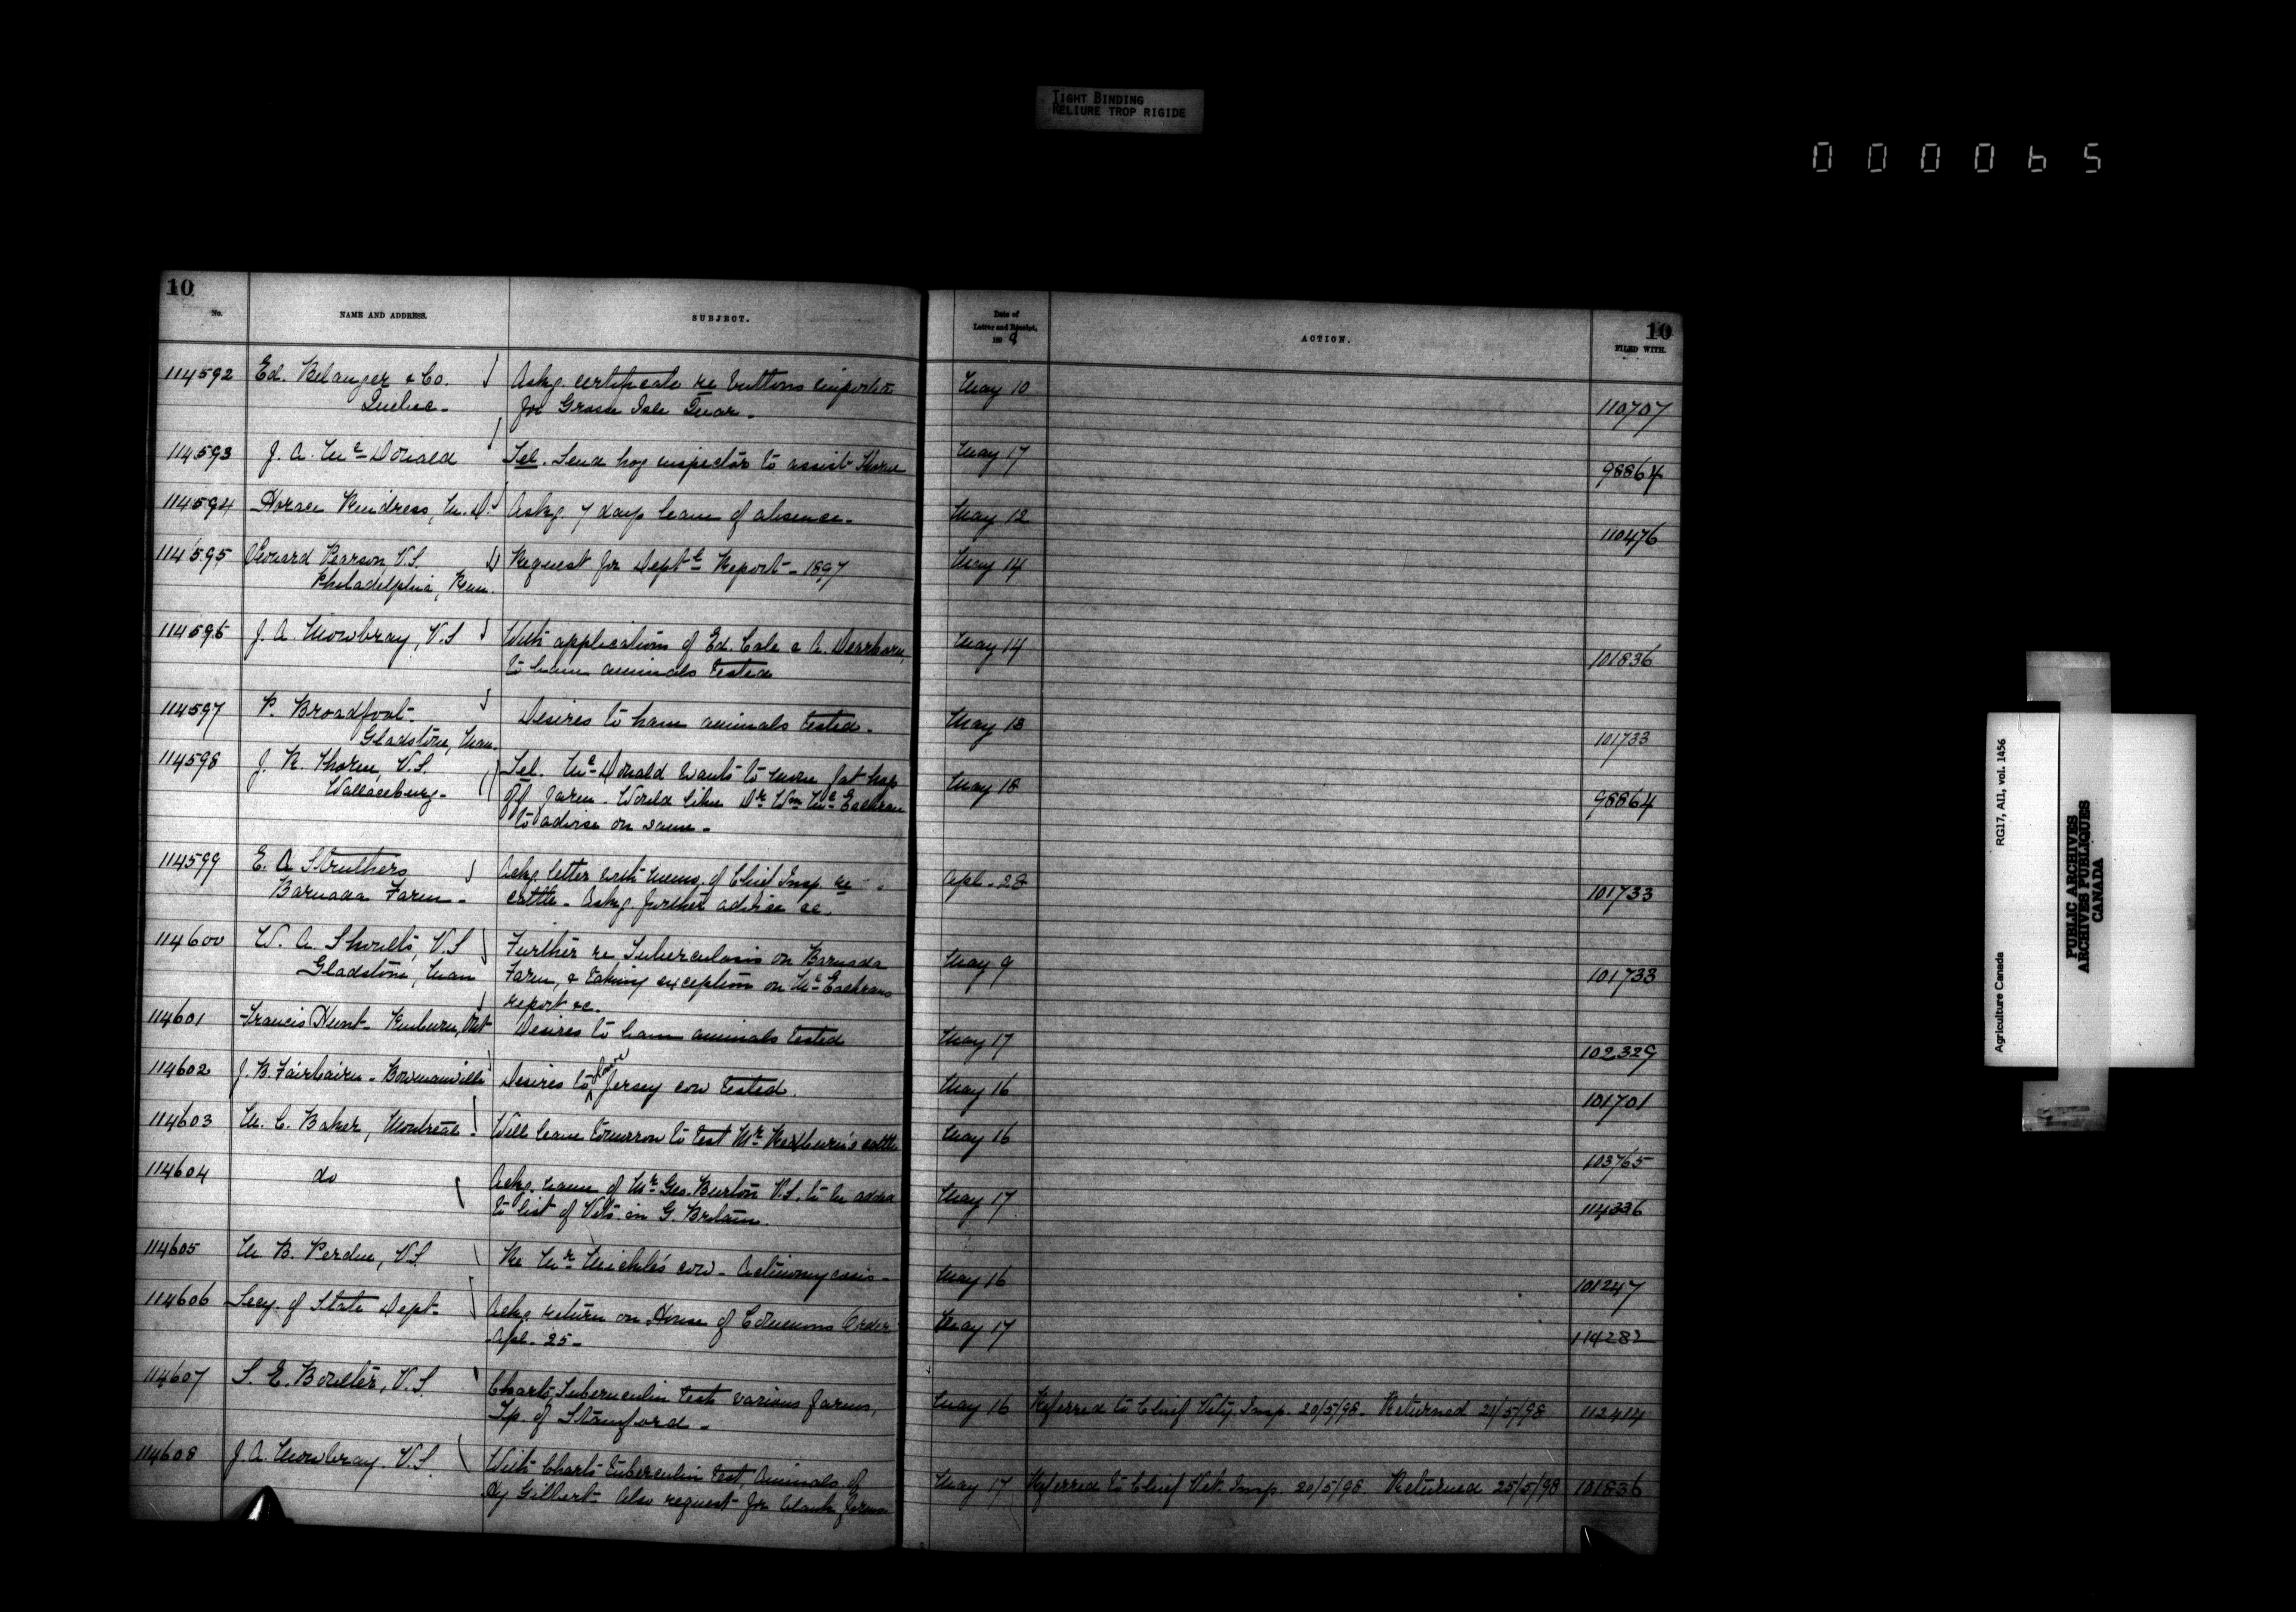 TIGHT BINDING
RELIURE TROP RIGIDE
000065
10
No.
NAME AND ADDRESS.
SUBJECT.
Date of
Letter and Receipt,
189
ACTION.
10
FILED WITH.
114592 Ed. Belanger & Co. Askg. certificate re buttons imported May 10
Quebec. for Grosse Isle Quar. 110707
114593 J. A. McDonald Tel. Send hog inspector to assist Thorne May 17 98864
114594 Horace Kendress, M.D. Askg. 7 days leave of absence. May 12 110476
114595 Leonard Pearson, V.S. Request for Deptl Report - 1897 May 14
Philadelphia, Penn.
114596 J. A. Mowbray, V.S With applications of Ed. Cale & A. Dearborn, May 14
to have animals tested 101836
114597 P. Broadfoot. Desires to have animals tested. May 13
Gladstone, Man. 101733
114598 J. R. Thorne, V.S. Tel. McDonald wants to move fat hogs May 18
Wallaceburg. off farm. Would like Dr. Wm McEachran 98864
to advise on same.
114599 E. A Struthers Ackg. letter with memo. of Chief Insp. re Apl. 28
Barnada Farm. cattle. Askg. further advice &c. 101733
114600 W. A. Shoults, V.S Further re Tuberculosis on Barnada May 9
Gladstone, Man Farm, & taking exception on McEachrans 101733
report &c.
114601 Francis Hunt. Kinburn, Ont Desires to have animals tested May 17 102329
114602 J. B. Fairbairn. Bowmanville Desires to have Jersey cow tested. May 16 101701
114603 M. C. Baker, Montreal. Will leave tomorrow to test Mr. Redburn's cattle May 16 103765
114604 do Askg. name of Mr. Geo. Burton V.S. to be added May 17
to list of Vets in G. Britain. 114336
114605 M. B. Perdue, V.S. Re Mr. Mickle's cow. Actinomycosis. May 16 101247
114606 Secy. of State Dept. Askg. return on House of Commons Order May 17
Apl. 25. 114282
114607 S. E. Boulter, V.S. Charts, Tuberculin test various farms, May 16 Referred to Chief Vety. Insp. 20/5/98. Returned 21/5/98 112414
Tp. of Stamford.
114608 J. A. Mowbray. V.S. With Charts tuberculin test, animals of May 17 Referred to Chief Vet. Insp. 20/5/98 Returned 25/5/98 101836
Hy Gilbert. Also request for blank forms
Agriculture Canada RG17, AII, vol. 1456
PUBLIC ARCHIVES
ARCHIVES PUBLIQUES
CANADA